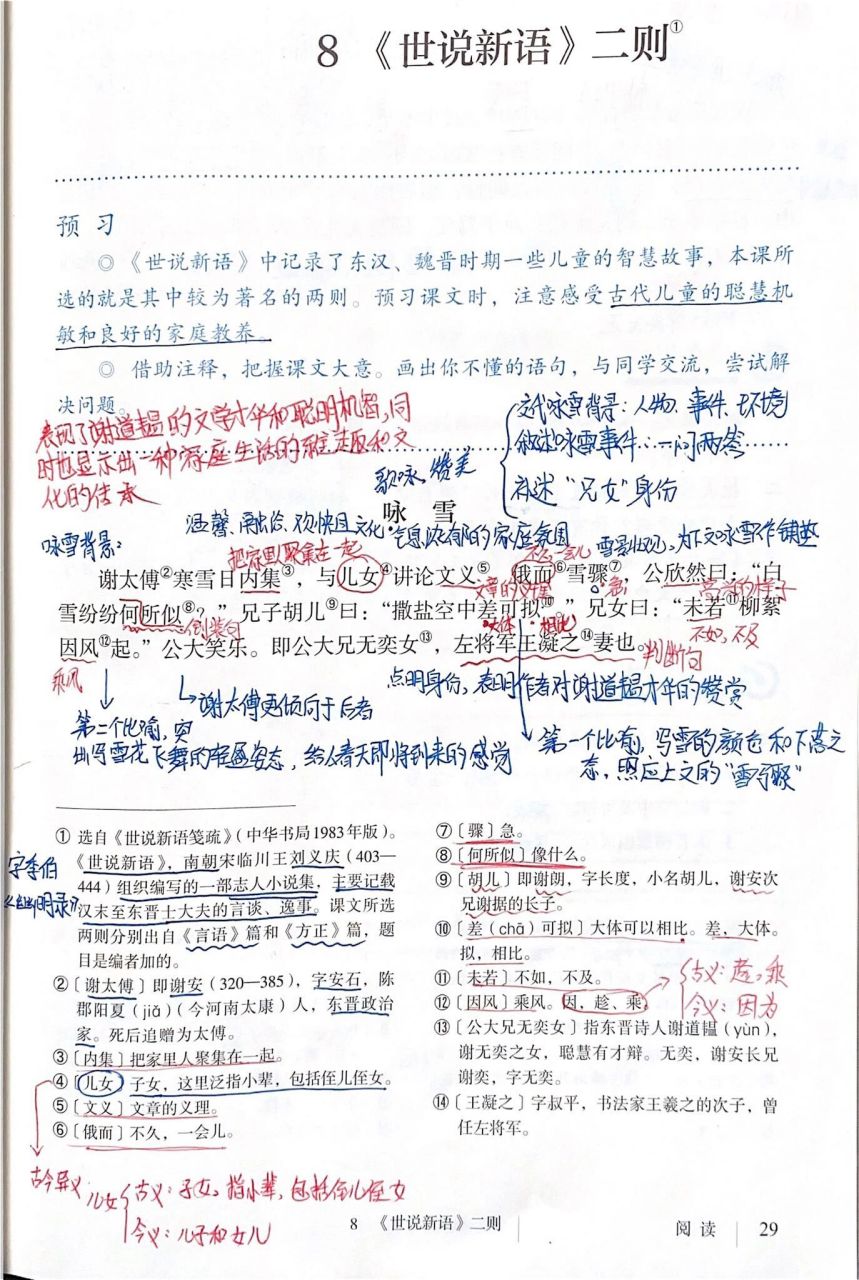 8 《世说新语》二则①
预习
◎ 《世说新语》中记录了东汉、魏晋时期一些儿童的智慧故事，本课所
选的就是其中较为著名的两则。预习课文时，注意感受古代儿童的聪慧机
敏和良好的家庭教养。
◎ 借助注释，把握课文大意。画出你不懂的语句，与同学交流，尝试解
决问题。
表现了谢道韫的文学才华和聪明机智，同
时也显示出一种家庭生活的雅趣和文
化的传承
交代咏雪背景：人物、事件、环境
叙述咏雪事件：一问两答
补述“兄女”身份
歌咏，赞美
咏雪
温馨、融洽、欢快且文化气息浓郁的家庭氛围
雪景出现，为下文咏雪作铺垫
咏雪背景：
把家里人聚集在一起
不久，一会儿
谢太傅②寒雪日内集③，与儿女④讲论文义⑤。俄而⑥雪骤⑦，公欣然曰：“白
文章的义理
急
高兴的样子
雪纷纷何所似⑧？”兄子胡儿⑨曰：“撒盐空中差可拟⑩。”兄女曰：“未若⑪柳絮
倒装句
大体
相比
不如，不及
因风⑫起。”公大笑乐。即公大兄无奕女⑬，左将军王凝之⑭妻也。
判断句
乘风
谢太傅更倾向于后者
点明身份，表明作者对谢道韫才华的赞赏
第二个比喻，突
出写雪花飞舞的姿态，给人春天即将到来的感觉
第一个比喻，写雪的颜色和下落之
态，照应上文的“雪骤”
① 选自《世说新语笺疏》（中华书局1983年版）。
《世说新语》，南朝宋临川王刘义庆（403—
444）组织编写的一部志人小说集，主要记载
汉末至东晋士大夫的言谈、逸事。课文所选
两则分别出自《言语》篇和《方正》篇，题
目是编者加的。
字季伯
《幽明录》
②〔谢太傅〕即谢安（320—385），字安石，陈
郡阳夏（jiǎ）（今河南太康）人，东晋政治
家。死后追赠为太傅。
③〔内集〕把家里人聚集在一起。
④〔儿女〕子女，这里泛指小辈，包括侄儿侄女。
⑤〔文义〕文章的义理。
⑥〔俄而〕不久，一会儿。
⑦〔骤〕急。
⑧〔何所似〕像什么。
⑨〔胡儿〕即谢朗，字长度，小名胡儿，谢安次
兄谢据的长子。
⑩〔差（chā）可拟〕大体可以相比。差，大体。
拟，相比。
⑪〔未若〕不如，不及。
⑫〔因风〕乘风。因，趁、乘。
古义：趁，乘
今义：因为
⑬〔公大兄无奕女〕指东晋诗人谢道韫（yùn），
谢无奕之女，聪慧有才辩。无奕，谢安长兄
谢奕，字无奕。
⑭〔王凝之〕字叔平，书法家王羲之的次子，曾
任左将军。
古今异义
儿女
古义：子女，指小辈，包括侄儿侄女
今义：儿子和女儿
8 《世说新语》二则
阅读 29